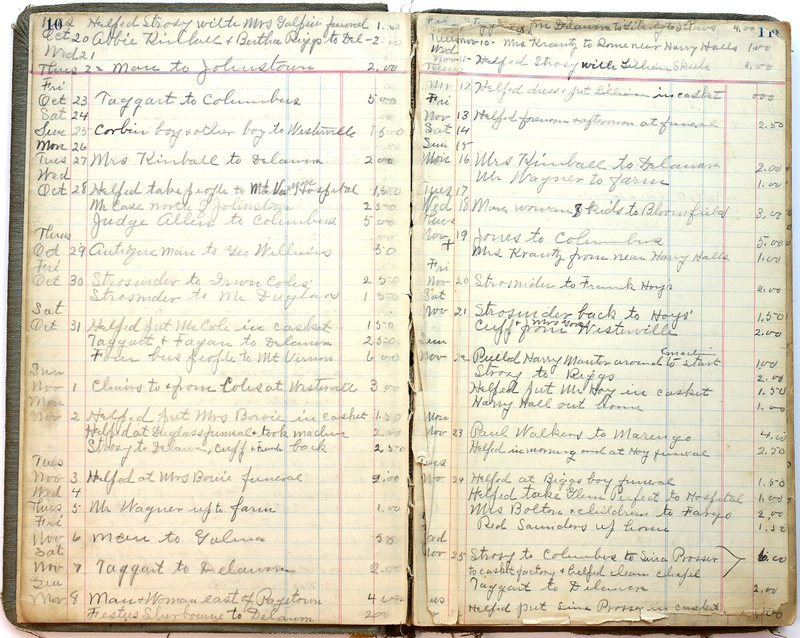 10
Helfed Strosy with Mrs Galfin funeral 1.
Oct 20 Abbie Kimball & Bertha Riggs to Del - 2.
Wed 21
Thurs 22 Man to Johnstown 2.00
Fri
Oct 23 Taggart to Columbus 5.00
Sat 24
Sun 25 Corbin boy & other boy to Westerville
Mon 26
Tues 27 Mrs Kimball to Delawrn 2.00
Wed
Oct 28 Helfed take people to Mt Hospital 1.50
Mc Case north of Johnstown 2.50
Judge Allen to Columbus 5.00
Thurs
Oct 29 Antique Man to Geo Williams 50
Fri
Oct 30 Strosnider to Irwin Coles' 2.50
Strosnider to Mc Duglass 1.50
Sat
Oct 31 Helfed put Mc Cole in casket 1.50
Taggart & Fagan to Delawrn 2.50
Four bus people to Mt Vernon 6.00
Sun
Nov 1 Chairs to & from Coles at Westerville 3.00
Mon
Nov 2 Helfed put Mrs Bowie in casket 1.50
Helfed at Duglass funeral & took machine 2.00
Strosy to Delawrn, Cuff & back 2.50
Tues
Nov 3 Helfed at Mrs Bowie funeral 2.00
Wed 4
Thurs 5 Mr Wagner up to farm 1.00
Fri
Nov 6 Man to Galena 50
Sat
Nov 7 Taggart to Delawrn 2.00
Sun
Nov 8 Man & Woman east of Pagetown 4.00
Festus to Delawrn 2.00
11
from Delawrn to Liberty to 4.00
Tues Nov 10 - Mrs Krantz to Rome near Harry Halls 1.00
Wed
Nov 11 - Helfed Strosy with Lillian Skeels
Thurs
Nov 12 Helfed dress & put Lillian in casket
Fri
Nov 13 Helfed forenoon & afternoon at funeral 2.50
Sat 14
Sun 15
Mon 16 Mrs Kimball to Delaware 2.00
Mr Wagner to farm 1.00
Tues 17
Wed 18 Man, woman & kids to Bloomfield 3.00
Thurs
Nov 19 Jones to Columbus 5.00
+ Mrs Krantz from near Harry Halls 1.00
Fri
Nov 20 Strosnider to Frank Hoys 2.00
Sat
Nov 21 Strosnider back to Hoys' 1.50
Cuff & Mrs from Westerville 2.00
Sun
Nov 22 Pulled Harry Mantor around to start machine 1.00
Strosy to Biggs 2.00
Helfed put Mr Hoy in casket 1.50
Harry Hall out home 1.00
Mon
Nov 23 Paul Walkers to Marengo 4.00
Helfed in morning and at Hoy funeral 2.50
Tues
Nov 24 Helfed at Biggs boy funeral 1.50
Helfed take Glenn Perfect to Hospital 1.00
Mrs Bolton & children to Fargo 2.00
Red Saunders up home 1.50
Wed
Nov 25 Strosy to Columbus to Sina Prosser
to casket factory & helfed clean chapel 6.00
Taggart to Delawrn 2.00
Helfed put Sina Prosser in casket